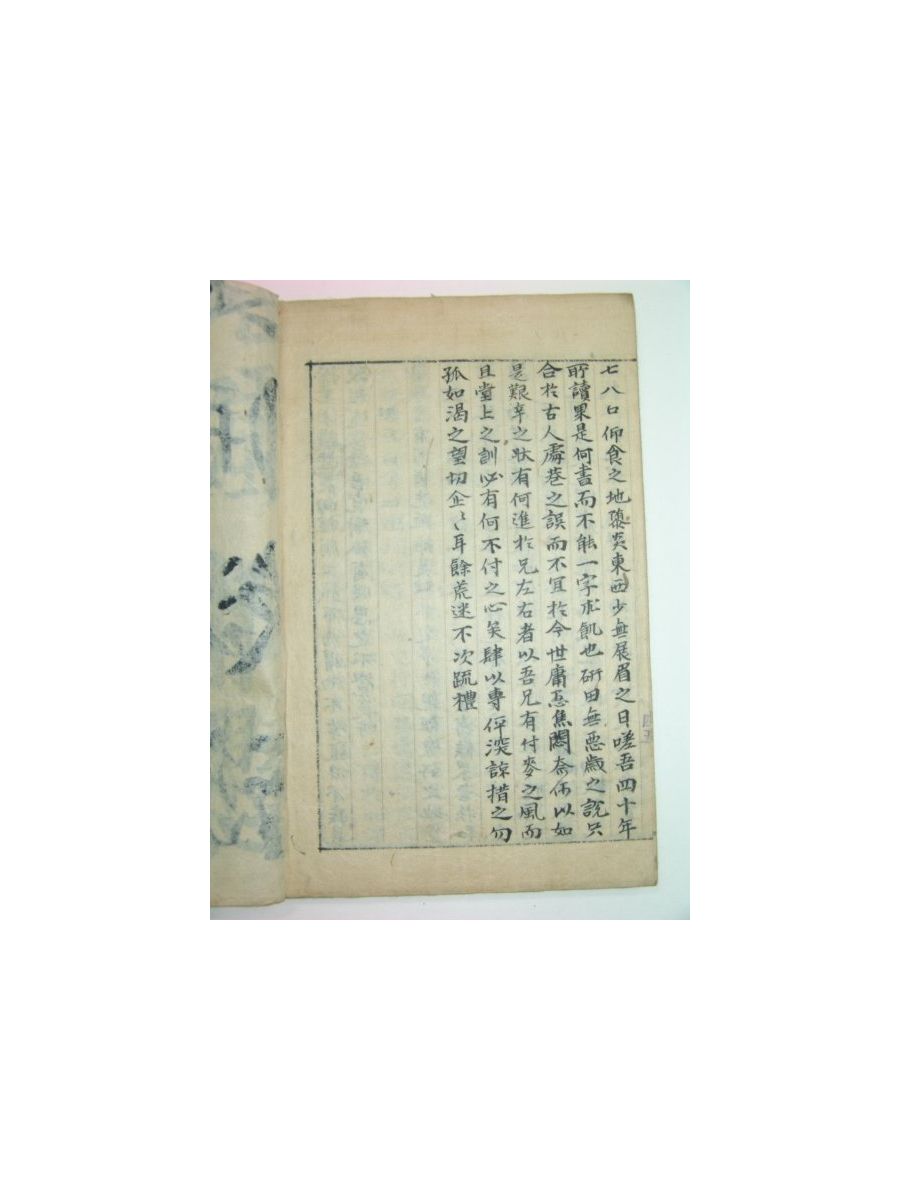 七八口仰食之地 東西少無展眉之日嗟吾四十年
所讀果是何書而不能一字求飢也硏田無惡歲之說只
合於古人 巷之誤而不宜於今世庸 焦悶奈何以如
是艱辛之狀有何進於兄左右者以吾兄有付麥之風而
且堂上之訓必有何不付之心矣肆以專伻深諒措之勿
孤如渴之望切企〻耳餘荒迷不次疏禮